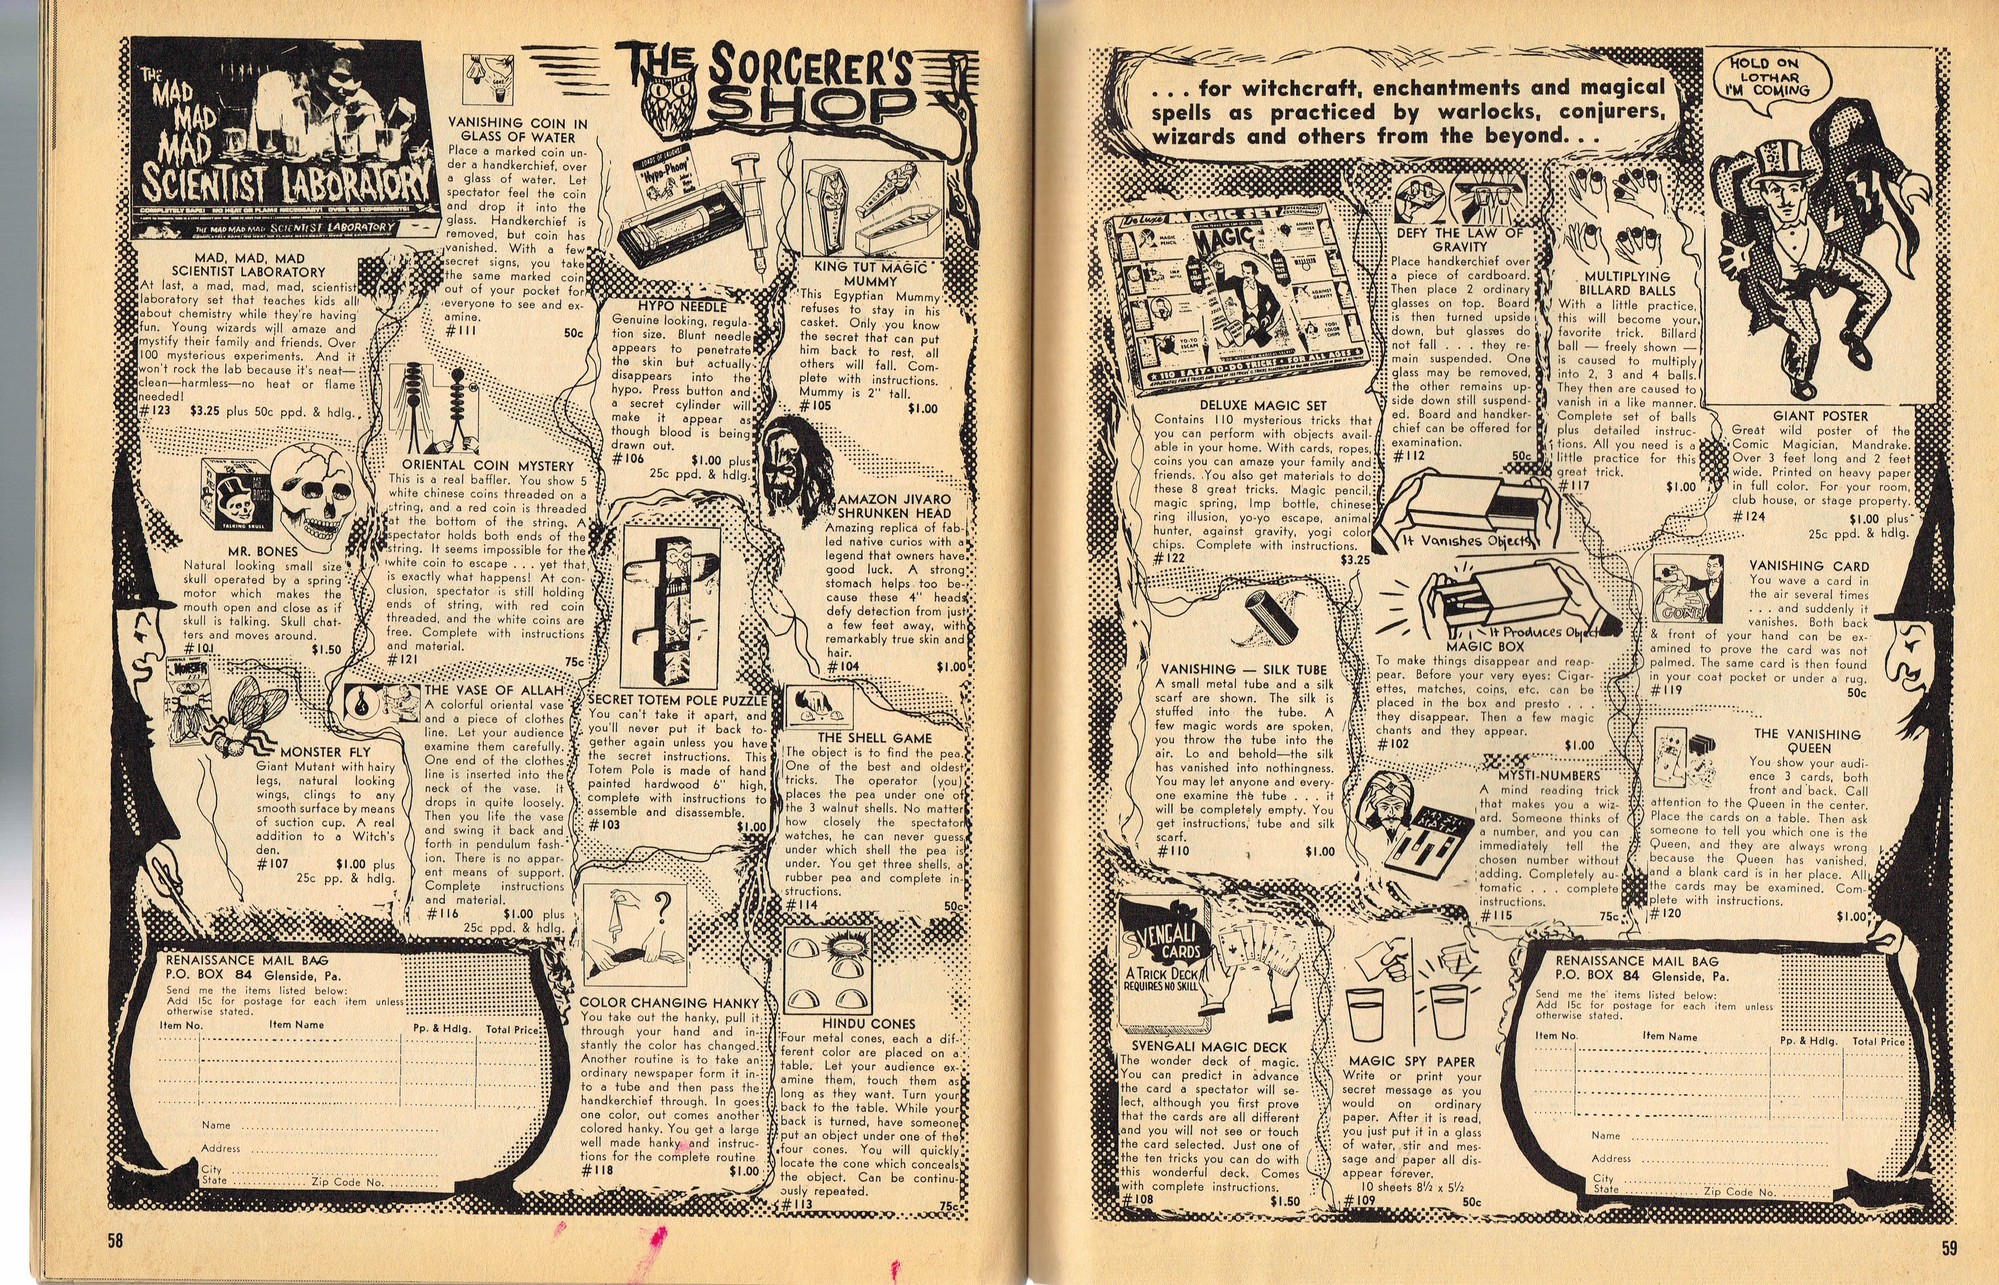 THE
MAD
MAD
MAD
SCIENTIST LABORATORY
COMPLETELY SAFE! NO HEAT OR FLAME NECESSARY! OVER 100 EXPERIMENTS
THE MAD MAD MAD SCIENTIST LABORATORY
MAD, MAD, MAD
SCIENTIST LABORATORY
At last, a mad, mad, mad, scientist
laboratory set that teaches kids all
about chemistry while they're having
fun. Young wizards will amaze and
mystify their family and friends. Over
100 mysterious experiments. And it
won't rock the lab because it's neat—
clean—harmless—no heat or flame
needed!
#123 $3.25 plus 50c ppd. & hdlg.
MR BONES
TALKING SKULL
MR. BONES
Natural looking small size
skull operated by a spring
motor which makes the
mouth open and close as if
skull is talking. Skull chat-
ters and moves around.
#101 $1.50
MONSTER
MONSTER FLY
Giant Mutant with hairy
legs, natural looking
wings, clings to any
smooth surface by means
of suction cup. A real
addition to a Witch's
den.
#107 $1.00 plus
25c pp. & hdlg.
VANISHING COIN IN
GLASS OF WATER
Place a marked coin un-
der a handkerchief, over
a glass of water. Let
spectator feel the coin
and drop it into the
glass. Handkerchief is
removed, but coin has
vanished. With a few
secret signs, you take
the same marked coin
out of your pocket for
everyone to see and ex-
amine.
#111 50c
ORIENTAL COIN MYSTERY
This is a real baffler. You show 5
white chinese coins threaded on a
string, and a red coin is threaded
at the bottom of the string. A
spectator holds both ends of the
string. It seems impossible for the
white coin to escape . . . yet that
is exactly what happens! At con-
clusion, spectator is still holding
ends of string, with red coin
threaded, and the white coins are
free. Complete with instructions
and material.
#121 75c
THE VASE OF ALLAH
A colorful oriental vase
and a piece of clothes
line. Let your audience
examine them carefully.
One end of the clothes
line is inserted into the
neck of the vase. It
drops in quite loosely.
Then you life the vase
and swing it back and
forth in pendulum fash-
ion. There is no appar-
ent means of support.
Complete instructions
and material.
#116 $1.00 plus
25c ppd. & hdlg.
THE SORCERER'S
SHOP
LOADS OF LAUGHS!
"Hypo-Phony"
HYPO NEEDLE
Genuine looking, regula-
tion size. Blunt needle
appears to penetrate
the skin but actually
disappears into the
hypo. Press button and
a secret cylinder will
make it appear as
though blood is being
drawn out.
#106 $1.00 plus
25c ppd. & hdlg.
SECRET TOTEM POLE PUZZLE
You can't take it apart, and
you'll never put it back to-
gether again unless you have
the secret instructions. This
Totem Pole is made of hand
painted hardwood 6" high,
complete with instructions to
assemble and disassemble.
#103 $1.00
?
COLOR CHANGING HANKY
You take out the hanky, pull it
through your hand and in-
stantly the color has changed.
Another routine is to take an
ordinary newspaper form it in-
to a tube and then pass the
handkerchief through. In goes
one color, out comes another
colored hanky. You get a large
well made hanky and instruc-
tions for the complete routine.
#118 $1.00
KING TUT MAGIC
MUMMY
This Egyptian Mummy
refuses to stay in his
casket. Only you know
the secret that can put
him back to rest, all
others will fall. Com-
plete with instructions.
Mummy is 2" tall.
#105 $1.00
AMAZON JIVARO
SHRUNKEN HEAD
Amazing replica of fab-
led native curios with a
legend that owners have
good luck. A strong
stomach helps too be-
cause these 4" heads
defy detection from just
a few feet away, with
remarkably true skin and
hair.
#104 $1.00
THE SHELL GAME
The object is to find the pea.
One of the best and oldest
tricks. The operator (you)
places the pea under one of
the 3 walnut shells. No matter
how closely the spectator
watches, he can never guess
under which shell the pea is
under. You get three shells, a
rubber pea and complete in-
structions.
#114 50c
HINDU CONES
Four metal cones, each a dif-
ferent color are placed on a
table. Let your audience ex-
amine them, touch them as
long as they want. Turn your
back to the table. While your
back is turned, have someone
put an object under one of the
four cones. You will quickly
locate the cone which conceals
the object. Can be continu-
ously repeated.
#113 75c
RENAISSANCE MAIL BAG
P.O. BOX 84 Glenside, Pa.
Send me the items listed below:
Add 15c for postage for each item unless
otherwise stated.
Item No. Item Name Pp. & Hdlg. Total Price
Name
Address
City
State Zip Code No.
58
. . . for witchcraft, enchantments and magical
spells as practiced by warlocks, conjurers,
wizards and others from the beyond. . .
HOLD ON
LOTHAR
I'M COMING
De Luxe MAGIC SET
MAGIC
MAGIC PENCIL
YO-YO ESCAPE
110 EASY-TO-DO TRICKS • FOR ALL AGES
DELUXE MAGIC SET
Contains 110 mysterious tricks that
you can perform with objects avail-
able in your home. With cards, ropes,
coins you can amaze your family and
friends. You also get materials to do
these 8 great tricks. Magic pencil,
magic spring, Imp bottle, chinese
ring illusion, yo-yo escape, animal
hunter, against gravity, yogi color
chips. Complete with instructions.
#122 $3.25
VANISHING — SILK TUBE
A small metal tube and a silk
scarf are shown. The silk is
stuffed into the tube. A
few magic words are spoken,
you throw the tube into the
air. Lo and behold—the silk
has vanished into nothingness.
You may let anyone and every-
one examine the tube . . . it
will be completely empty. You
get instructions, tube and silk
scarf.
#110 $1.00
SVENGALI
CARDS
A TRICK DECK
REQUIRES NO SKILL
SVENGALI MAGIC DECK
The wonder deck of magic.
You can predict in advance
the card a spectator will se-
lect, although you first prove
that the cards are all different
and you will not see or touch
the card selected. Just one of
the ten tricks you can do with
this wonderful deck. Comes
with complete instructions.
#108 $1.50
DEFY THE LAW OF
GRAVITY
Place handkerchief over
a piece of cardboard.
Then place 2 ordinary
glasses on top. Board
is then turned upside
down, but glasses do
not fall . . . they re-
main suspended. One
glass may be removed,
the other remains up-
side down still suspend-
ed. Board and handker-
chief can be offered for
examination.
#112 50c
It Vanishes Objects
It Produces Objects
MAGIC BOX
To make things disappear and reap-
pear. Before your very eyes: Cigar-
ettes, matches, coins, etc. can be
placed in the box and presto . . .
they disappear. Then a few magic
chants and they appear.
#102 $1.00
MYSTI-NUMBERS
A mind reading trick
that makes you a wiz-
ard. Someone thinks of
a number, and you can
immediately tell the
chosen number without
adding. Completely au-
tomatic . . . complete
instructions.
#115 75c
MAGIC SPY PAPER
Write or print your
secret message as you
would on ordinary
paper. After it is read,
you just put it in a glass
of water, stir and mes-
sage and paper all dis-
appear forever.
10 sheets 8½ x 5½
#109 50c
MULTIPLYING
BILLARD BALLS
With a little practice,
this will become your
favorite trick. Billard
ball — freely shown —
is caused to multiply
into 2, 3 and 4 balls.
They then are caused to
vanish in a like manner.
Complete set of balls
plus detailed instruc-
tions. All you need is a
little practice for this
great trick.
#117 $1.00
GIANT POSTER
Great wild poster of the
Comic Magician, Mandrake.
Over 3 feet long and 2 feet
wide. Printed on heavy paper
in full color. For your room,
club house, or stage property.
#124 $1.00 plus
25c ppd. & hdlg.
GONE
VANISHING CARD
You wave a card in
the air several times
. . . and suddenly it
vanishes. Both back
& front of your hand can be ex-
amined to prove the card was not
palmed. The same card is then found
in your coat pocket or under a rug.
#119 50c
THE VANISHING
QUEEN
You show your audi-
ence 3 cards, both
front and back. Call
attention to the Queen in the center.
Place the cards on a table. Then ask
someone to tell you which one is the
Queen, and they are always wrong
because the Queen has vanished,
and a blank card is in her place. All
the cards may be examined. Com-
plete with instructions.
#120 $1.00
RENAISSANCE MAIL BAG
P.O. BOX 84 Glenside, Pa.
Send me the items listed below:
Add 15c for postage for each item unless
otherwise stated.
Item No. Item Name Pp. & Hdlg. Total Price
Name
Address
City
State Zip Code No.
59